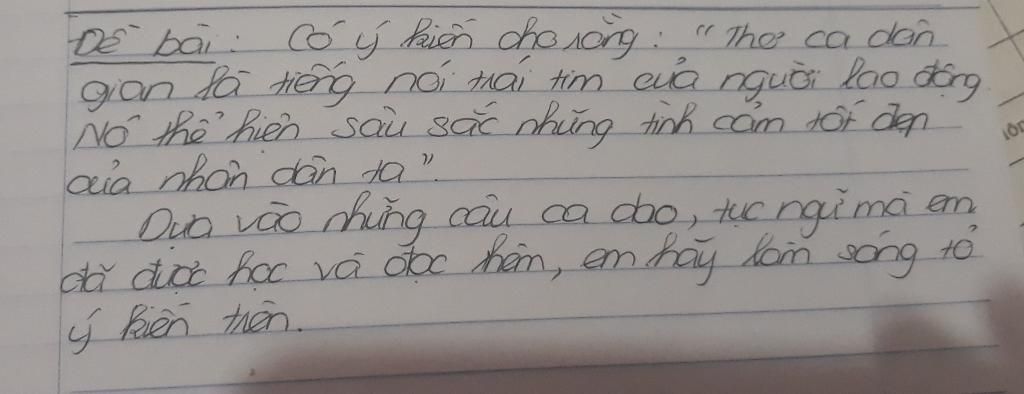 Đề bài: Có ý kiến cho rằng: "Thơ ca dân
gian là tiếng nói trái tim của người lao động.
Nó thể hiện sâu sắc những tình cảm tốt đẹp
của nhân dân ta".
Dựa vào những câu ca dao, tục ngữ mà em
đã được học và đọc thêm, em hãy làm sáng tỏ
ý kiến trên.